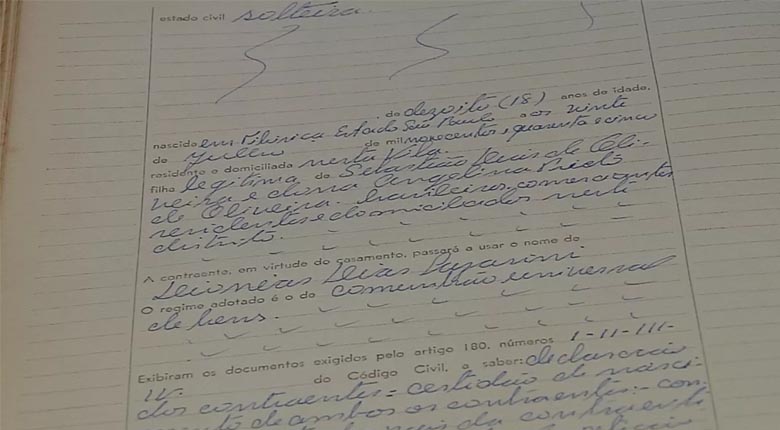 estado civil solteira.
de dezoito (18) anos de idade,
nascida em Ribirica Estado São Paulo aos vinte
de Julho de mil novecentos e quarenta e cinco
residente e domiciliada nesta Vila.
filha legitima de Sebastião Dias de Oli-
veira e dona Angelina Prido
de Oliveira. brasileiros, comerciantes
residentes e domiciliados neste
distrito.
A contraente, em virtude do casamento, passará a usar o nome de
Dias Lazarini
O regime adotado é o da comunhão universal
de bens.
Exibiram os documentos exigidos pelo artigo 180, números I-II-III-
IV. do Código Civil, a saber: declaração
dos contraentes = certidão de nasci-
mento de ambos os contraentes - con
da contraente